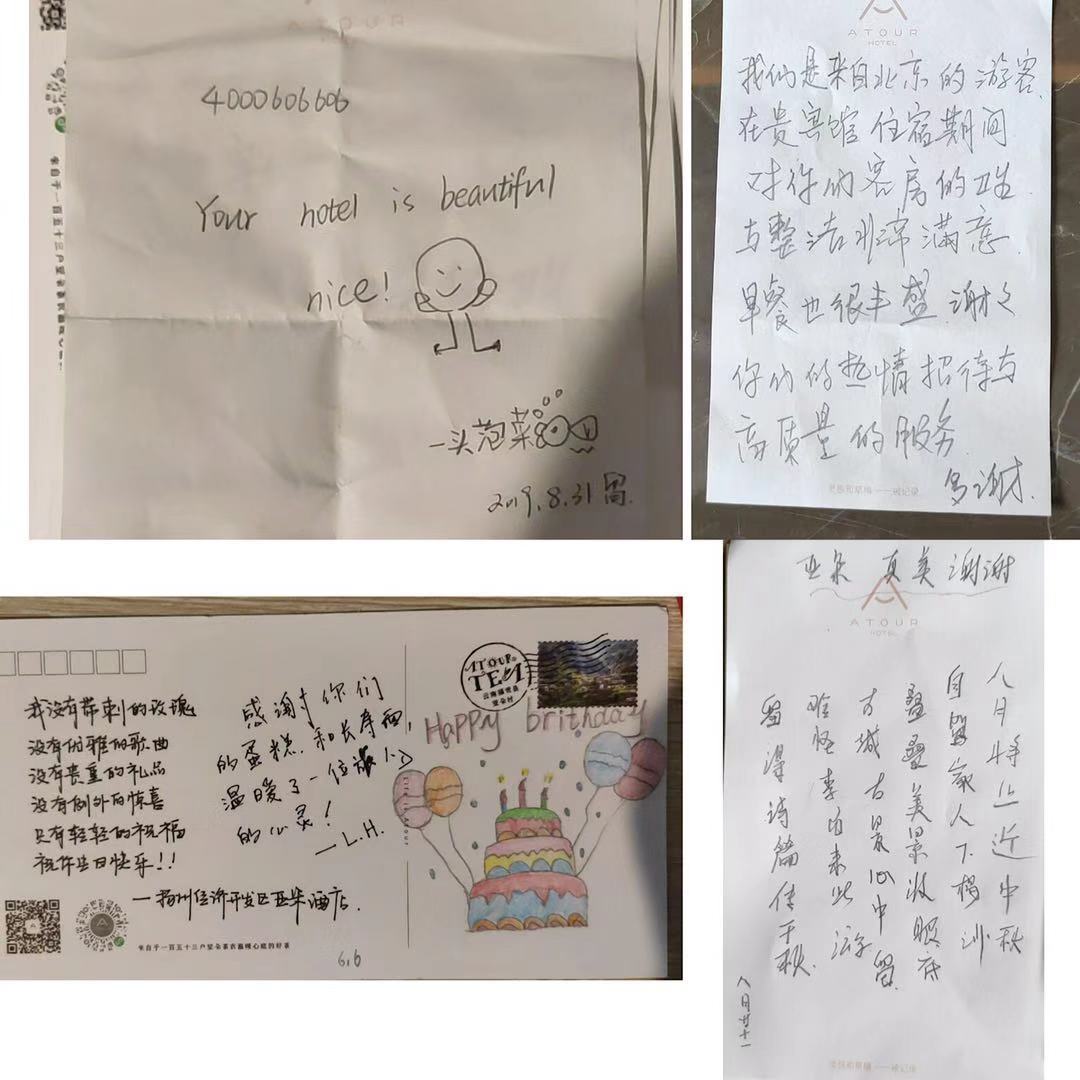 ATOUR
4000606606
Your hotel is beautiful
nice!
一头泡菜
2019.8.31 留.
来自于一百五十三户
ATOUR
HOTEL
我们是来自北京的游客.
在贵宾馆住宿期间
对你们客房的卫生
与整洁非常满意.
早餐也很丰盛.谢々
你们的热情招待与
高质量的服务.
多谢.
我没有带刺的玫瑰
没有优雅的歌曲
没有贵重的礼品
没有例外的惊喜
只有轻轻的祝福
祝你生日快乐!!
—扬州经济开发区亚朵酒店.
来自于一百五十三户
感谢你们
的蛋糕.和长寿面,
温暖了一位旅人
的心灵!
—L.H.
ATOUR
TEA
Happy brithday
6.6
亚朵 真美 谢谢
ATOUR
HOTEL
八月将止近中秋
自留家人下榻
叠叠美景收眼底
古城古景心中留.
难怪李白来此游
留得诗篇传千秋.
八月廿十一